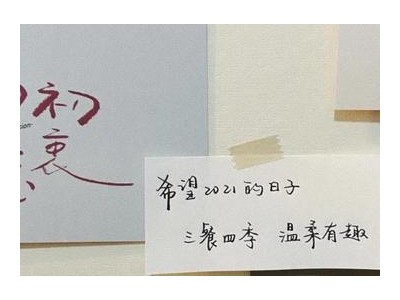 初衷
希望2021的日子
三餐四季 温柔有趣